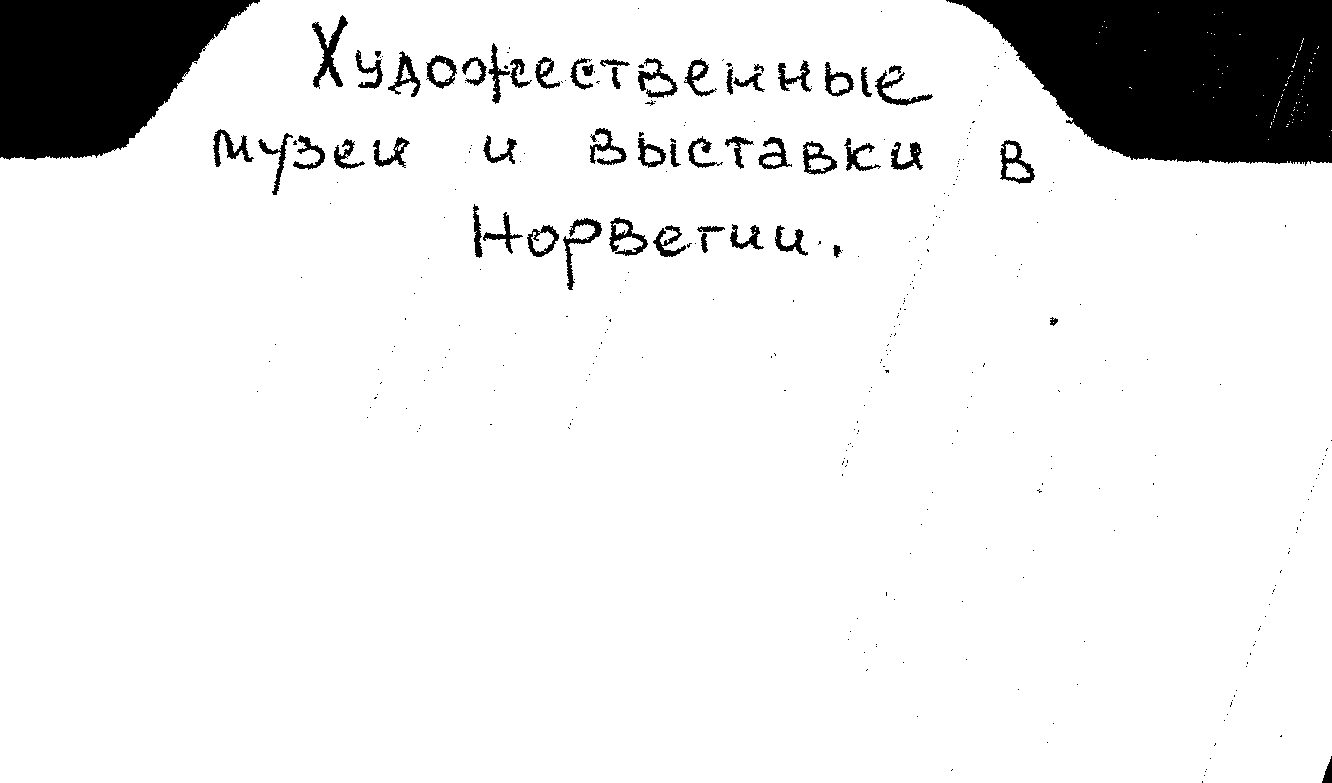 Художественные
музеи и выставки в
Норвегии.